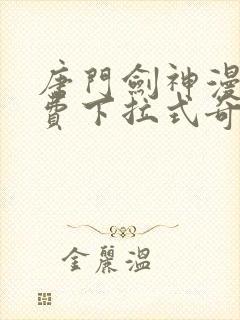 唐門劍神漫
費下拉式奇
金麗溫